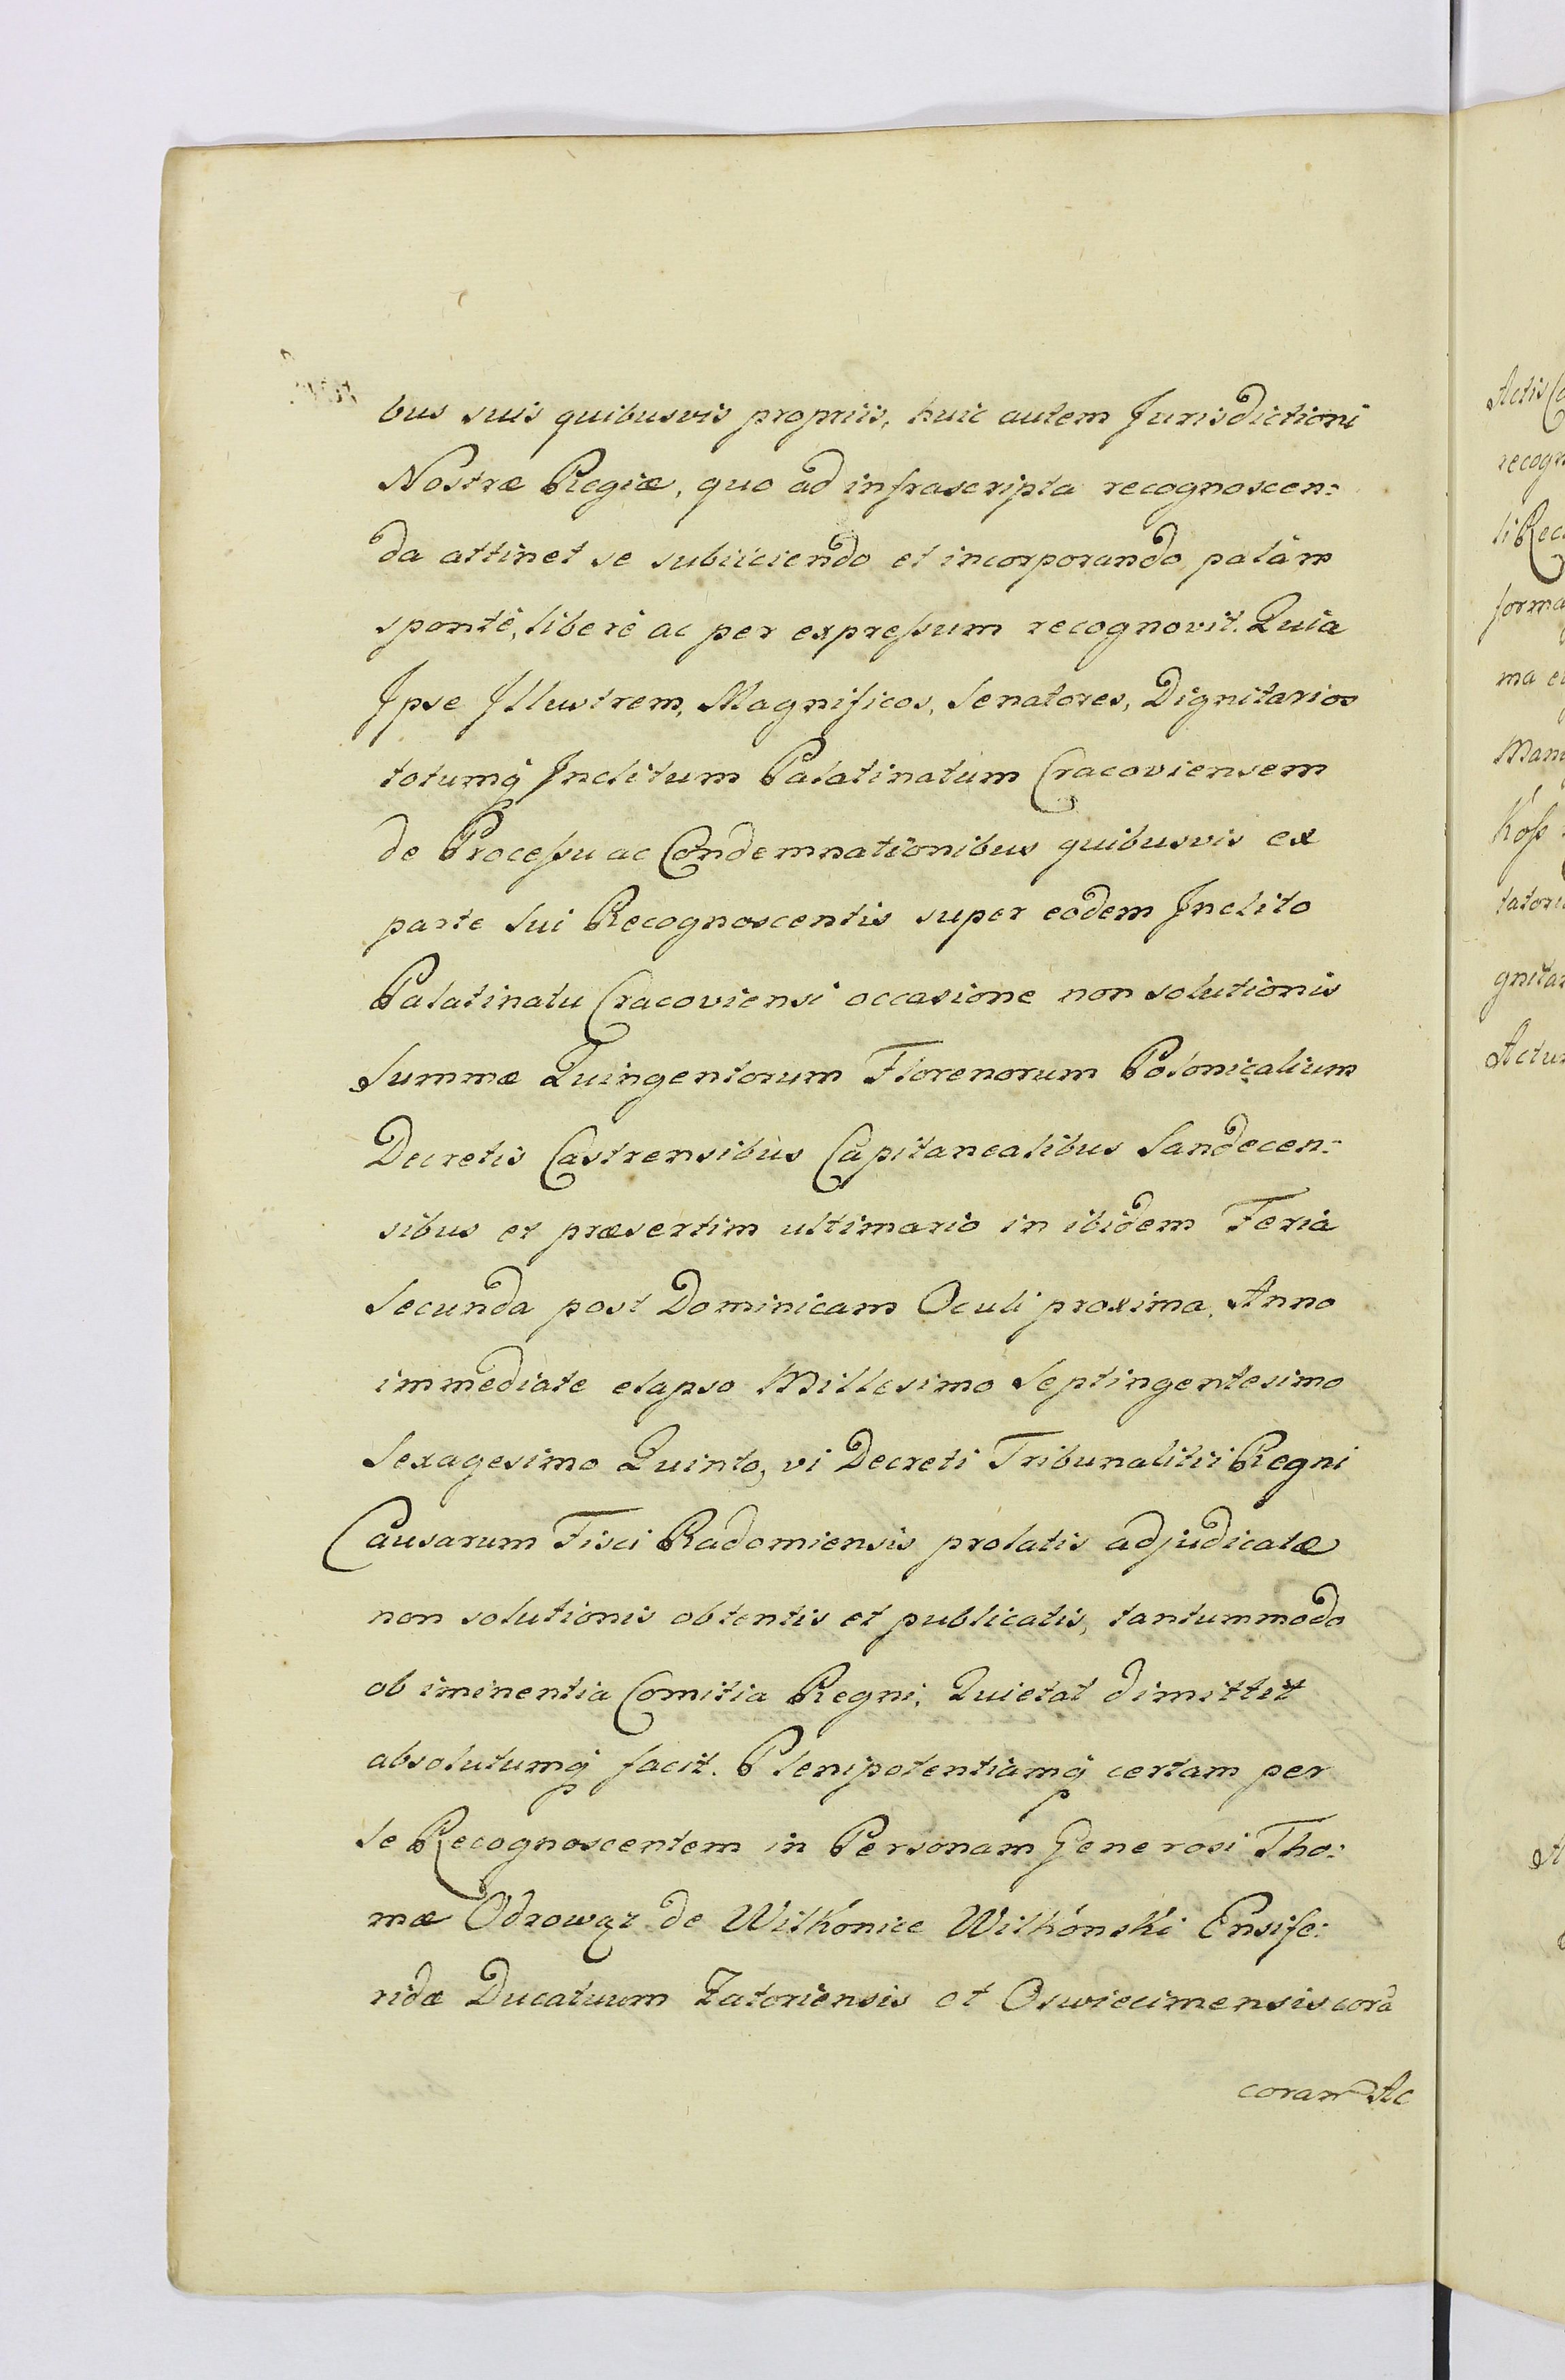 bus suis quibusvis propriis, huic autem Jurisdictioni
Nostræ Regiæ, quo ad infrascripta recognoscen:
da attinet se subiiciendo et incorporando palàm
spontè, liberè ac per expreſsum recognovit. Quia
Ipse Illustrem, Magnificos, Senatores, Dignitarios
totumq Inclitum Palatinatum Cracoviensem
de Proceſsu ac Condemnationibus quibusvis ex
parte sui Recognoscentis super eodem Inclito
Palatinatu Cracoviensi occasione non solutionis
Summæ Quingentorum Florenorum Polonicalium
Decretis Castrensibus Capitanealibus Sandecen:
sibus et præsertim ultimario in ibidem Feria
Secunda post Dominicam Oculi proxima, Anno
immediate elapso Millesimo Septingentesimo
Sexagesimo Quinto, vi Decreti Tribunalitii Regni
Causarum Fisci Radomiensis prolatis adjudicatæ
non solutionis obtentis et publicatis, tantummodo
ob iminentia Comitia Regni. Quietat dimittit
absolutumq facit. Plenipotentiamq certam per
se Recognoscentem in Personam Generosi Tho:
mæ Odrowąz de Wilkonice Wilkónski Ensife:
ridæ Ducatuum Zatoriensis et Oswiecimensis corā
coram Ac
Actis
recogn
li Rec
forma
ma e
Mani
Koſs
tatori
gnitar
Actu